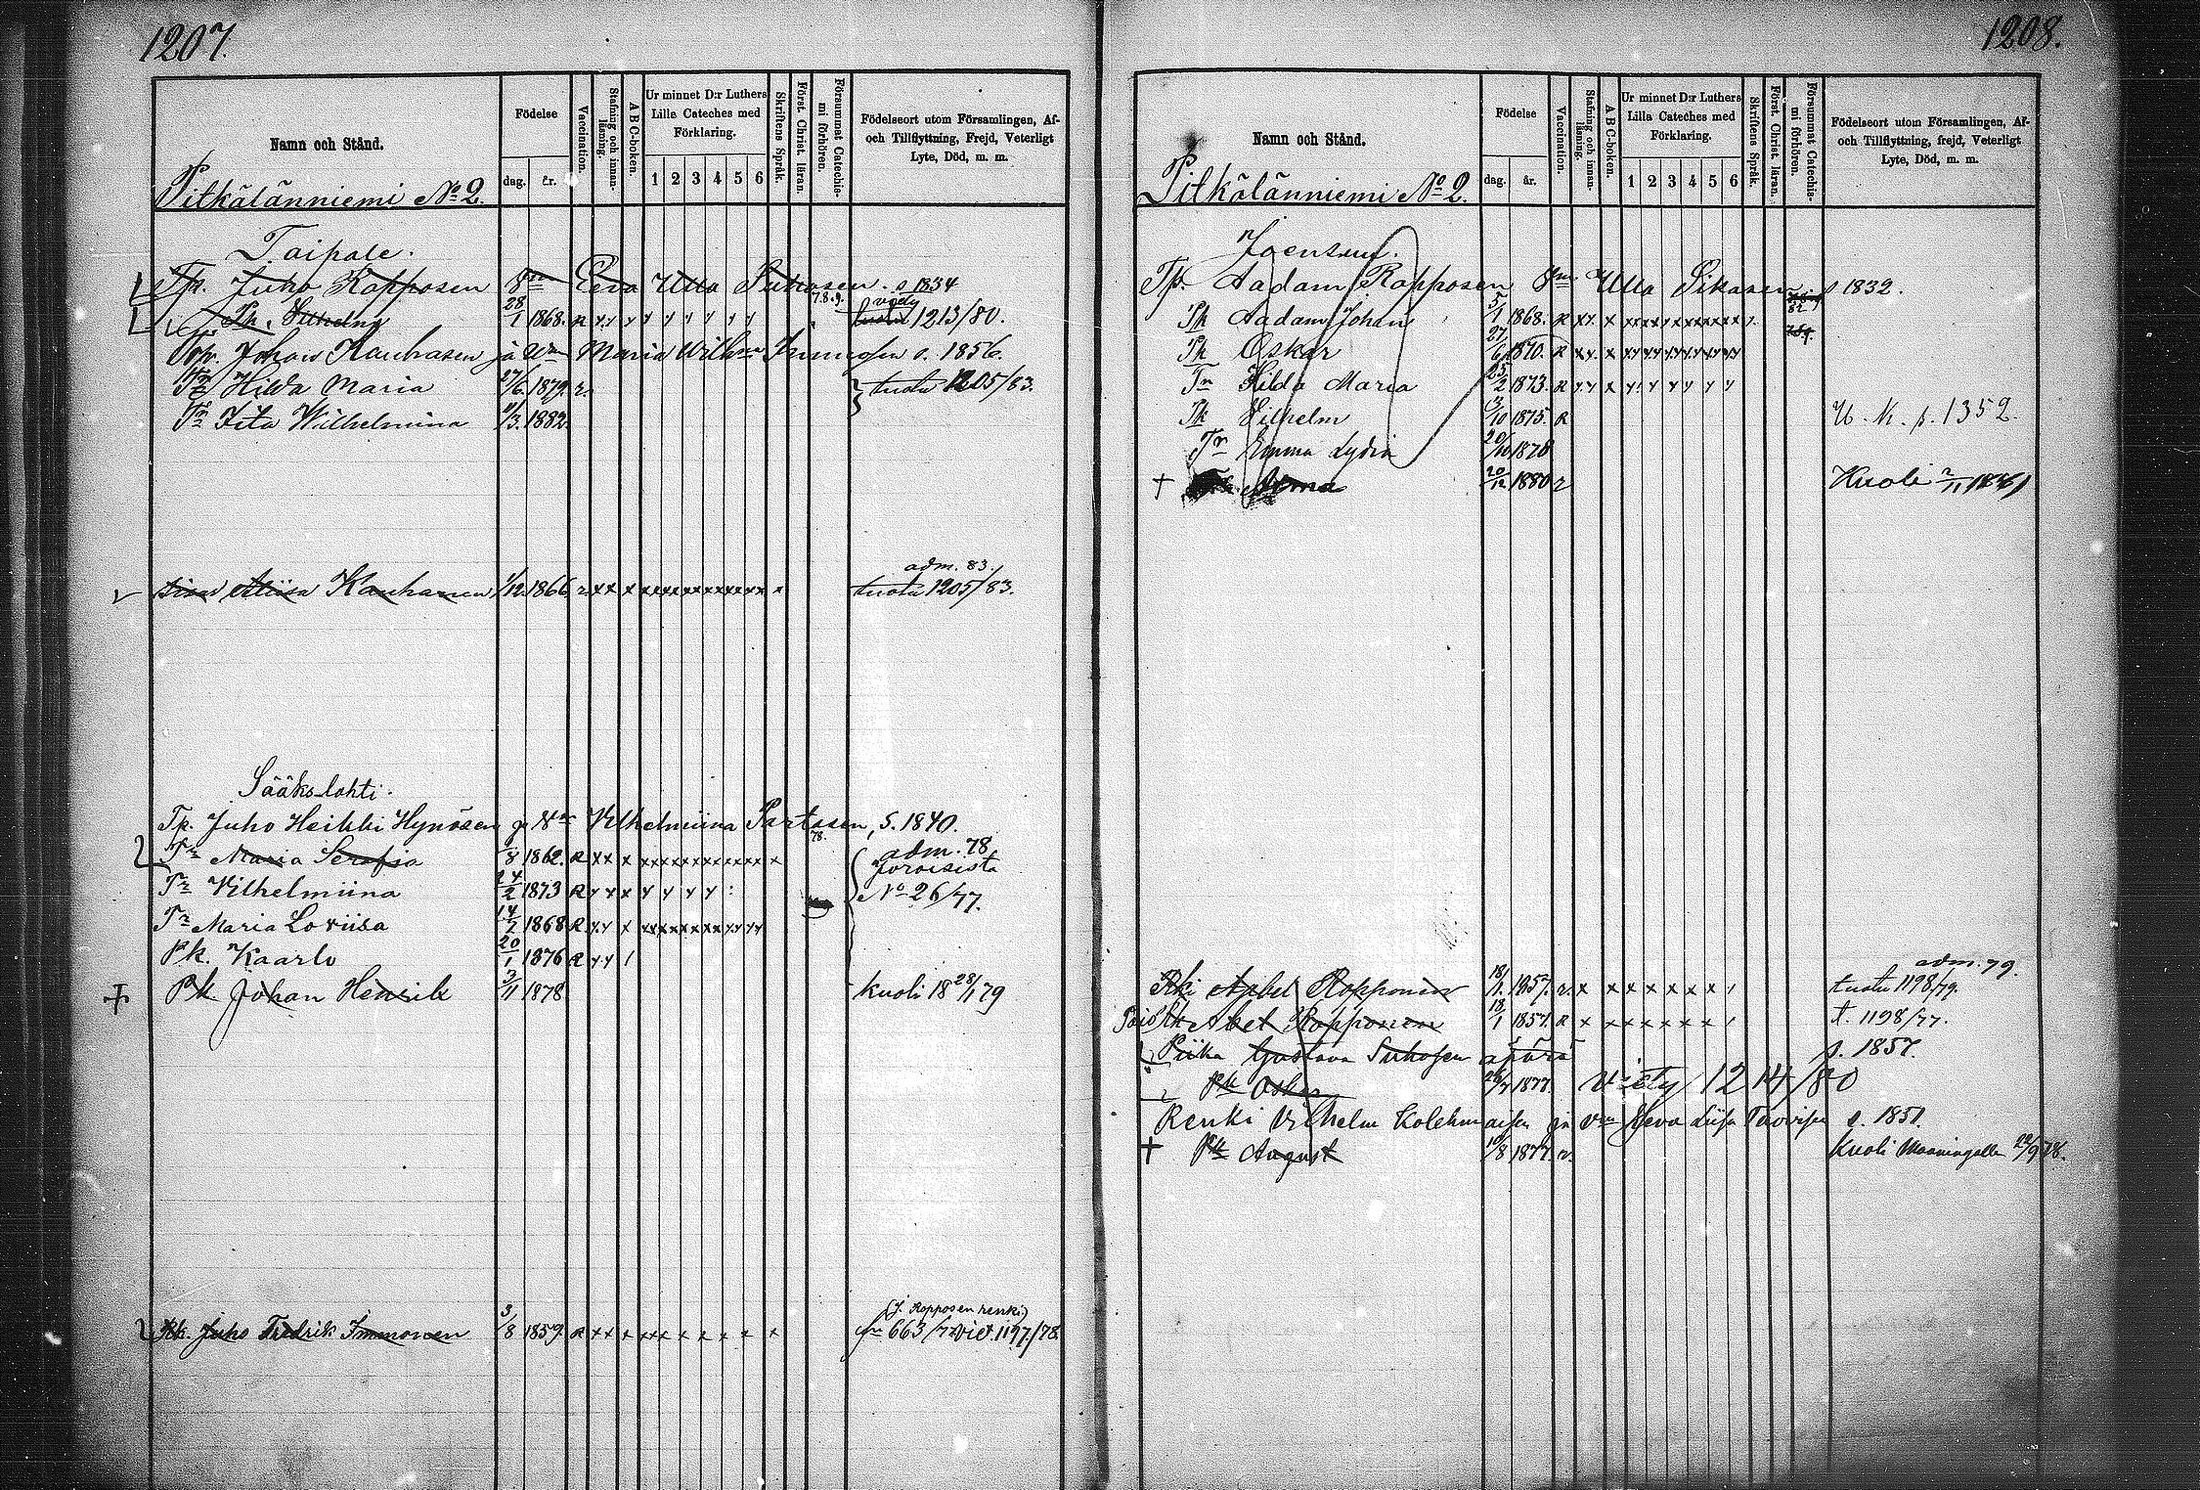 1207.
Namn och Stånd.
Födelse
dag. år.
Vaccination.
Stafning och innanläsning.
A B C-boken.
Ur minnet D:r Luthers Lilla Cateches med Förklaring.
1 2 3 4 5 6
Skriftens Språk.
Först. Christ. läran.
Försummat Catechismi förhören.
Födelseort utom Församlingen, Af- och Tillflyttning, Frejd, Veterligt Lyte, Död, m. m.
Pitkälänniemi No 2.
Taipale.
Tp. Juho Ropposen Eeva Ulla s. 1834
Pk. Vilhelm 28/1 1868. R 78.9. viety 1213/80.
Johan Kauhasen ja Maria s. 1856.
Tr Hilda Maria 27/6. 1879. r. tuotu 1205/83.
Tr Wilhelmina 9/3. 1882.
adm. 83.
Kauhanen 1/12. 1866 r x x x x x x x x x x tuotu 1205/83.
Sääkslahti.
Tp. Juho Heikki Hynösen ja Vilhelmiina Partasen, S. 1840.
78.
Tr Maria Serafia 1/8 1862. R x x x x x x x x x adm. 78
Joroisista
Tr Vilhelmiina 24/2 1873 R No 26/77.
Tr Maria Loviisa 14/2 1868 R
Pk. Kaarlo 20/1 1876 R
Pk Johan Henrik 3/11 1878 kuoli 18 28/1 79
(J. Ropposen renki)
Rk. Juho Fredrik Immonen 3/8 1859. R x x x x x x x x x 663/77 viet. 1197/78.
1208.
Namn och Stånd.
Födelse
dag. år.
Vaccination.
Stafning och innanläsning.
A B C-boken.
Ur minnet D:r Luthers Lilla Cateches med Förklaring.
1 2 3 4 5 6
Skriftens Språk.
Först. Christ. läran.
Försummat Catechismi förhören.
Födelseort utom Församlingen, Af- och Tillflyttning, frejd, Veterligt Lyte, Död, m. m.
Pitkälänniemi No 2.
Joensuu.
Tp. Aadam Ropposen Ulla Sikasen s 1832.
Pk Aadam Johan 5/1 1868. R
Pk Oskar 27/6 1870. R
Tr Hilda Maria 25/2 1873. R
Pk Vilhelm 3/10 1875. R U. K. p. 1352
Tr Emma Lydia 1878
Alma 20/12 1880 r Kuoli
adm. 79.
Rki Ropponen 18/1. 1857. r. x x x x x x x tuotu 1198/79.
Abel Ropponen 18/1 1857. R x x x x x x x t. 1198/77.
Piika Gustava Suhosen äpärä s. 1857.
Pk Oskar 1877. viety 1214/80
Renki Vilhelm Kolehmaisen ja vmo Heva Liisa s. 1851.
Pk August 10/8 1877. r. Kuoli Maaningalla 22/9 78.